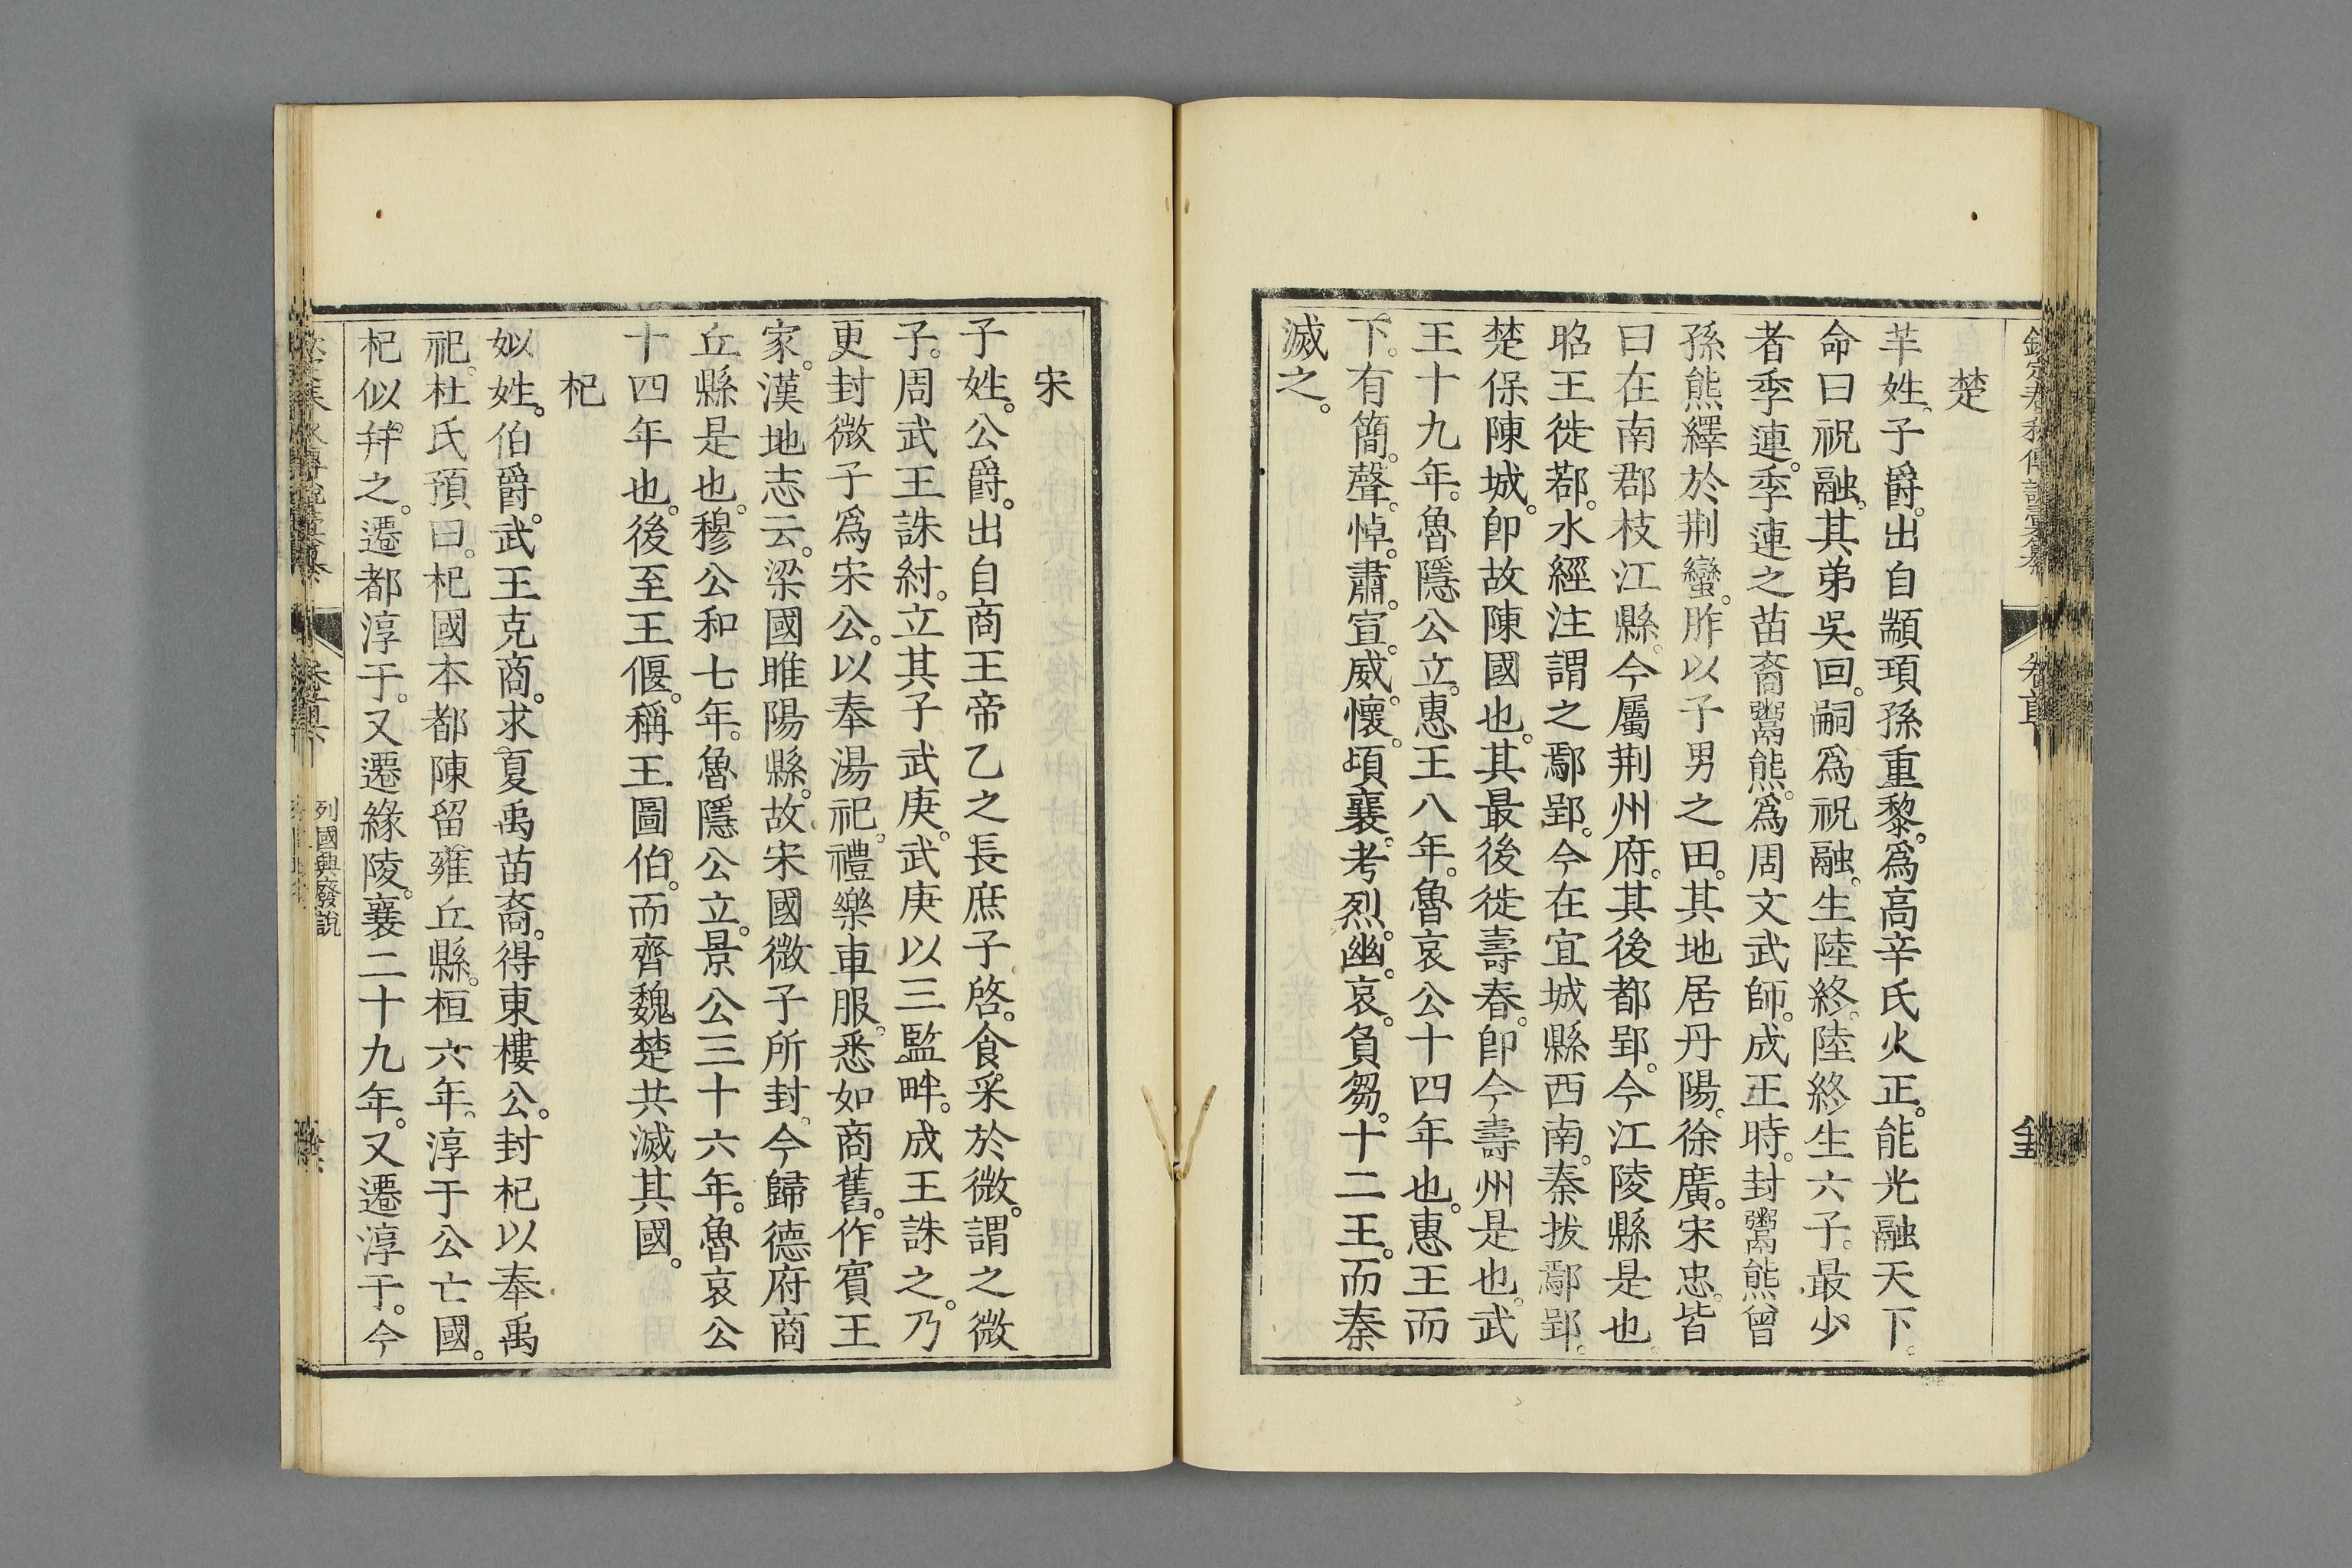 楚
芈姓。子爵。出自顓頊孫重黎。爲高辛氏火正。能光融天下。
命曰祝融。其弟吳回。嗣爲祝融。生陸終。陸終生六子。最少
者季連。季連之苗裔鬻熊。爲周文武師。成王時。封鬻熊曾
孫熊繹於荆蠻。胙以子男之田。其地居丹陽。徐廣。宋忠。皆
曰在南郡枝江縣。今屬荆州府。其後都郢。今江陵縣是也。
昭王徙鄀。水經注謂之鄢郢。今在宜城縣西南。秦拔鄢郢。
楚保陳城。卽故陳國也。其最後徙壽春。卽今壽州是也。武
王十九年。魯隱公立。惠王八年。魯哀公十四年也。惠王而
下。有簡。聲。悼。肅。宣。威。懷。頃襄。考烈。幽。哀。負芻。十二王。而秦
滅之。
宋
子姓。公爵。出自商王帝乙之長庶子啓。食采於微。謂之微
子。周武王誅紂。立其子武庚。武庚以三監畔。成王誅之。乃
更封微子爲宋公。以奉湯祀。禮樂車服。悉如商舊。作賓王
家。漢地志云。梁國睢陽縣。故宋國微子所封。今歸德府商
丘縣是也。穆公和七年。魯隱公立。景公三十六年。魯哀公
十四年也。後至王偃。稱王圖伯。而齊魏楚共滅其國。
杞
姒姓。伯爵。武王克商。求夏禹苗裔。得東樓公。封杞以奉禹
祀。杜氏預曰。杞國本都陳留雍丘縣。桓六年。淳于公亡國。
杞似并之。遷都淳于。又遷緣陵。襄二十九年。又遷淳于。今
列國興廢說